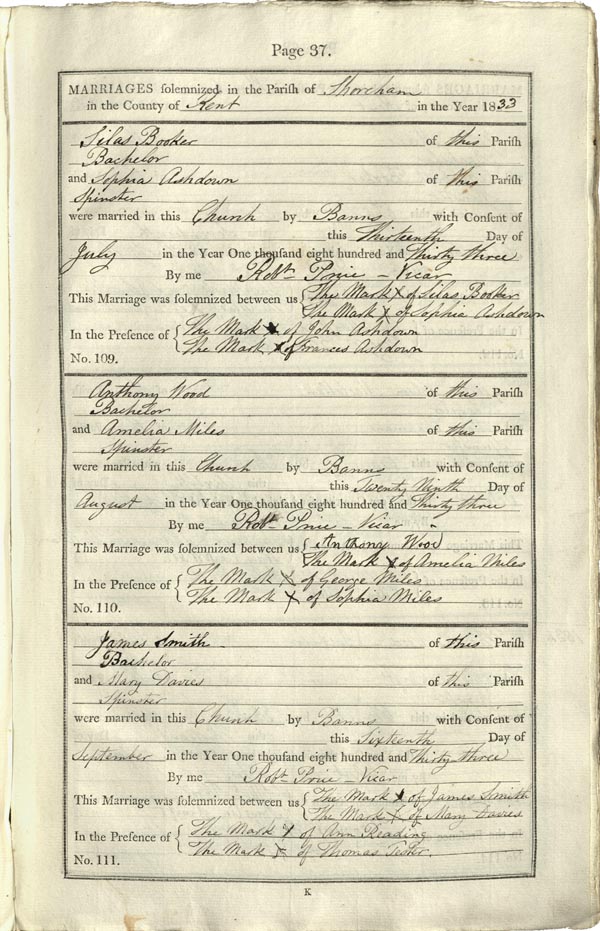 Page 37.
MARRIAGES solemnized in the Parish of Shoreham
in the County of Kent in the Year 1833
Silas Booker of this Parish
Bachelor
and Sophia Ashdown of this Parish
Spinster
were married in this Church by Banns with Consent of
this Thirteenth Day of
July in the Year One thousand eight hundred and Thirty three
By me Robt. Price - Vicar
This Marriage was solemnized between us { The Mark X of Silas Booker
The Mark X of Sophia Ashdown
In the Presence of { The Mark X of John Ashdown
The Mark X of Frances Ashdown
No. 109.
Anthony Wood of this Parish
Bachelor
and Amelia Miles of this Parish
Spinster
were married in this Church by Banns with Consent of
this Twenty Ninth Day of
August in the Year One thousand eight hundred and Thirty three
By me Robt. Price - Vicar -
This Marriage was solemnized between us { Anthony Wood
The Mark X of Amelia Miles
In the Presence of { The Mark X of George Miles
The Mark X of Sophia Miles
No. 110.
James Smith of this Parish
Bachelor
and Mary Davies of this Parish
Spinster
were married in this Church by Banns with Consent of
this Sixteenth Day of
September in the Year One thousand eight hundred and Thirty three
By me Robt. Price - Vicar
This Marriage was solemnized between us { The Mark X of James Smith
The Mark X of Mary Davies
In the Presence of { The Mark X of Ann Reading
The Mark X of Thomas Tester.
No. 111.
K